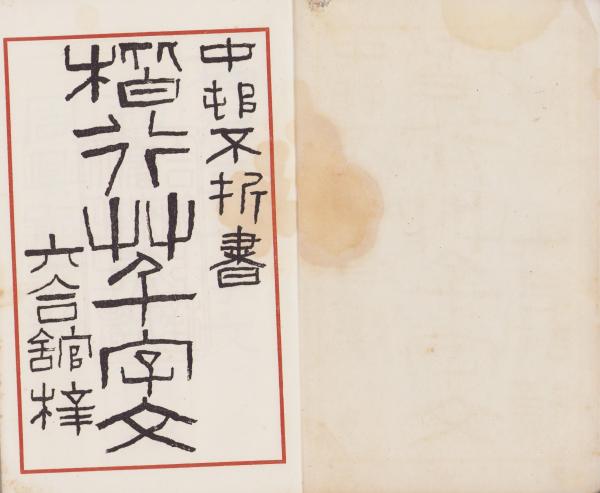 中邨不折書
楷行艸千字文
六合舘梓